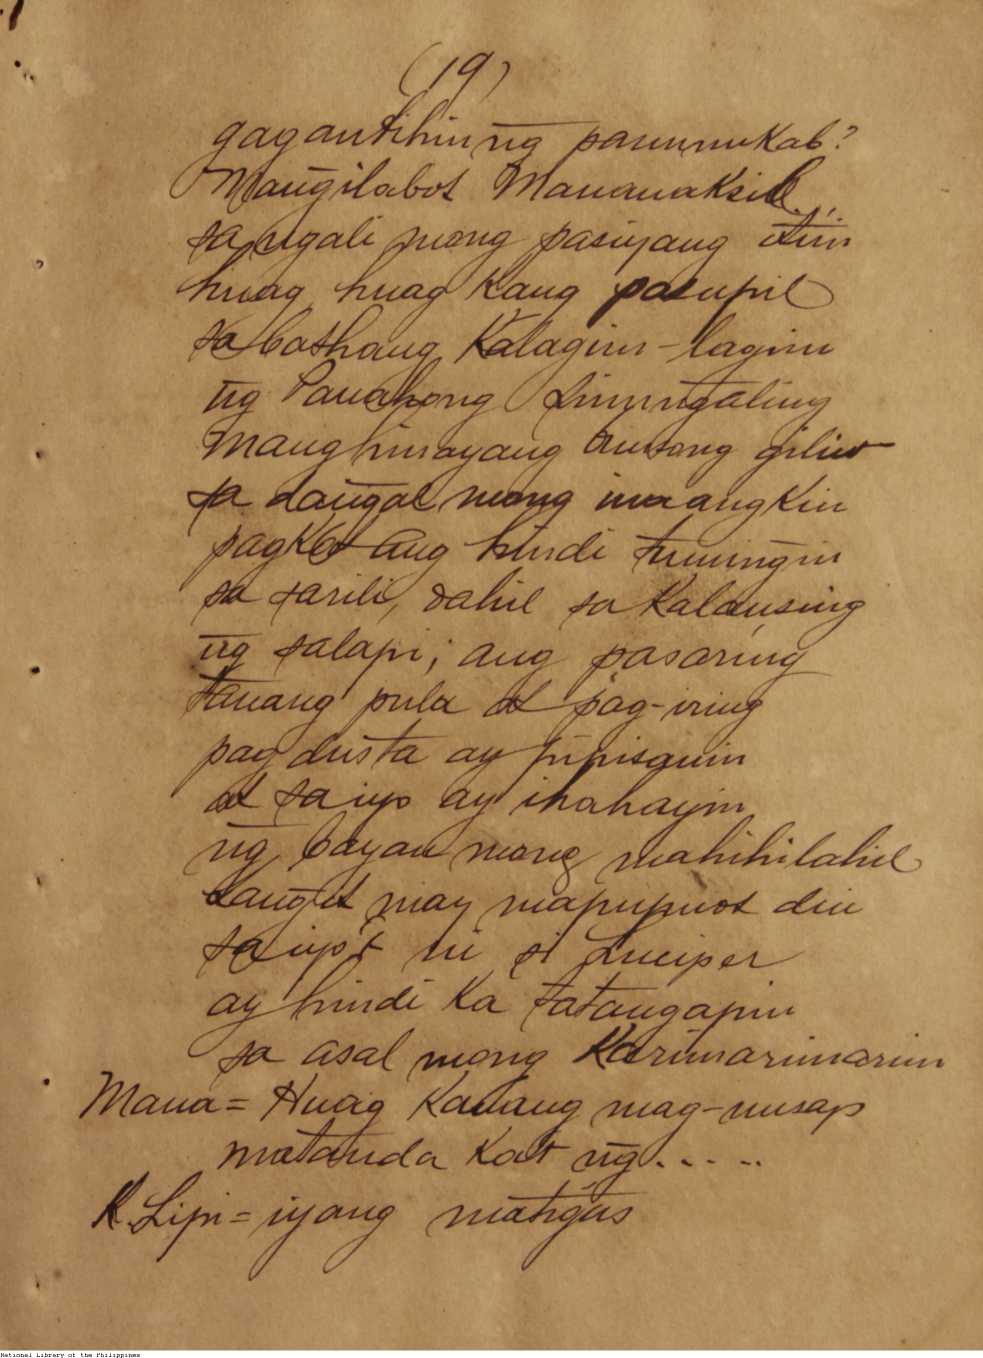 (19)
gagantihin ñg panunukab?
Mañgilabot Mananaksil,
sa ugali mong pasiyang itim
huag, huag kang pasupil
sa bathang kalagim-lagim
ñg Panahong sinuñgaling
Manghinayang Ausong giliw
sa dañgal mong inaangkin
pagka't ang hindi tumiñgin
sa sarili, dahil sa kalansing
ñg salapi; ang pasaring
tanang pula at pag-iring
pag dusta ay pipisanin
at sa iyo ay ihahayin
ñg bayan mong mahihilahil
Lañgit may mapupuot din
sa iyo't ni si Luciper
ay hindi ka tatangapin
sa asal mong Karimarimarim
Mana = Huag Kanang mag-uusap
matanda Kat ñg.....
K. Lipi = iyang matigás
National Library of the Philippines